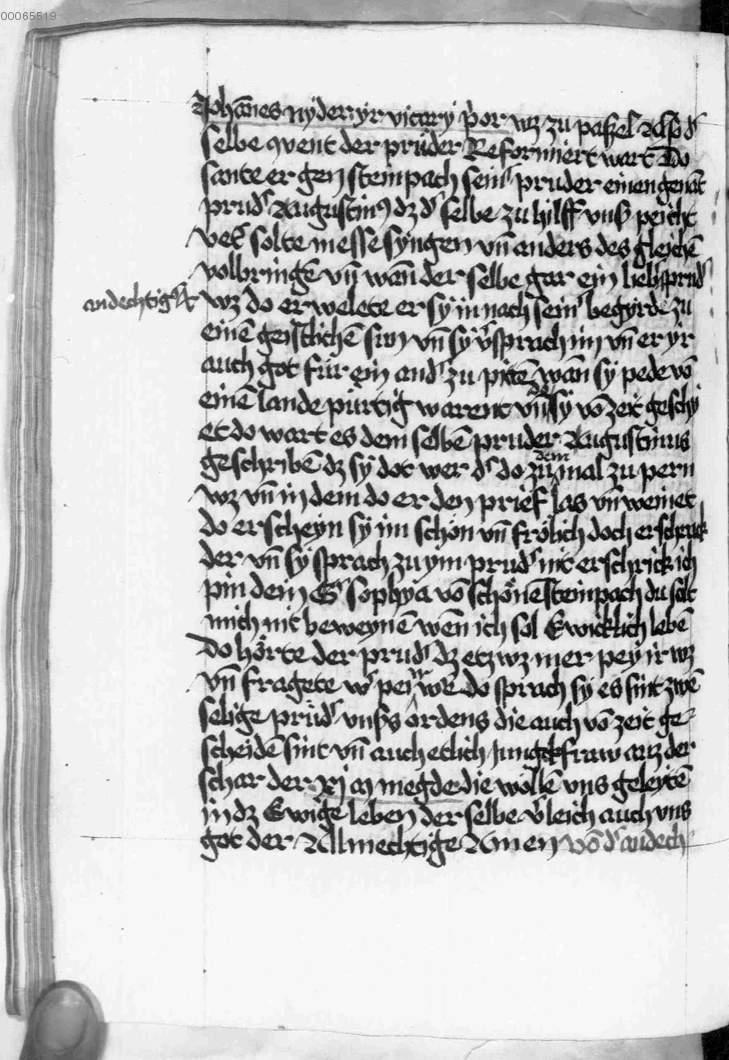 00065519
Johānes nyder yr vicary p̄or wz zu paſzel Alſo dˢ
ſelbe 9vent der prüder Reformiert wart Do
ſante er gen ſteinpach ſeinˢ pruder einen genāt
prudˢ Auguſtin9 dz dˢ ſelbe zu hilff vnſz peicht
ſolte meſſe ſyngen vn̄ anders des gleichē
volbringē vn̄ wān der ſelbe gar ein liebſprudˢ
andechtigˢ
wz do er welete er ſy in nach ſeinˢ begyrde zu
einē geiſtlichē ſun vn̄ ſy v̄ſprach im vn̄ er yr
auch got für ein andˢ zu pitē wān ſy pede vō
einē lande pürtig warent vn̄ do ſy vō zeit geſchy
et do wart es dem ſelbē pruder Auguſtinus
geſchribē dz ſy dot wer dˢ do zu dem mal zu pern
wz vn̄ in dem do er den prief las vn̄ weinet
do erſcheyn ſy im ſchön vn̄ frölich doch erſchrak
der vn̄ ſy ſprach zu ym prudˢ nit erſchrick ich
pin dein Sˢ ſophya vō ſchönēſteinpach du ſolt
mich nit beweynē wēn ich ſol Ewicklich lebē
do hörte der prudˢ dz etz wz mer pey ir wz
vn̄ fragete wˢ pey ir wer do ſprach ſy es ſint zwē
ſelige prüdˢ vnſzs ordens die auch vō zeit ge⸗
ſcheidē ſint vn̄ auch etlich Jungckfraw auz der
ſchar der xj m megde die wöllē vns geleytē
in dz Ewige leben der ſelbe v̄leich auch vns
got der Allmechtige Amen vō dˢ andech